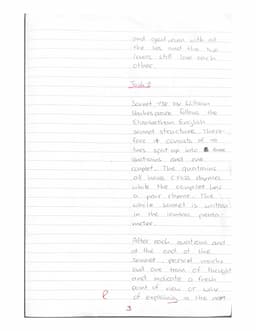 and quiet even with all
the lies and the two
lovers still love each
other.
Task 2
Sonnet 138 by William
Shakespeare follows the
Elizabethan English
sonnet structure. There-
fore it consists of 14
lines split up into three
quatrains and one
couplet. The quatrains
all have cross rhymes
while the couplet has
a pair rhyme. The
whole sonnet is written
in the iambic penta-
meter.
After each quatrains and
at the end of the
sonnet, period marks
end one train of thought
and indicate a fresh
point of view or way
of explaining in the next
3